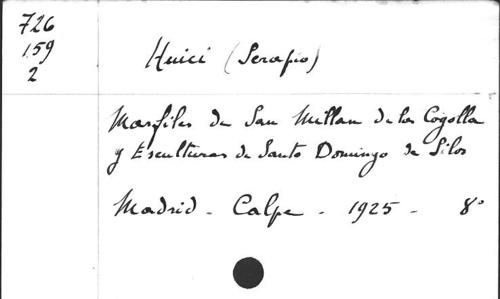 726
159
2
Huici (Serapio)
Marfiles de San Millan de la Cogolla
y Esculturas de Santo Domingo de Silos
Madrid - Calpe - 1925 - 8º